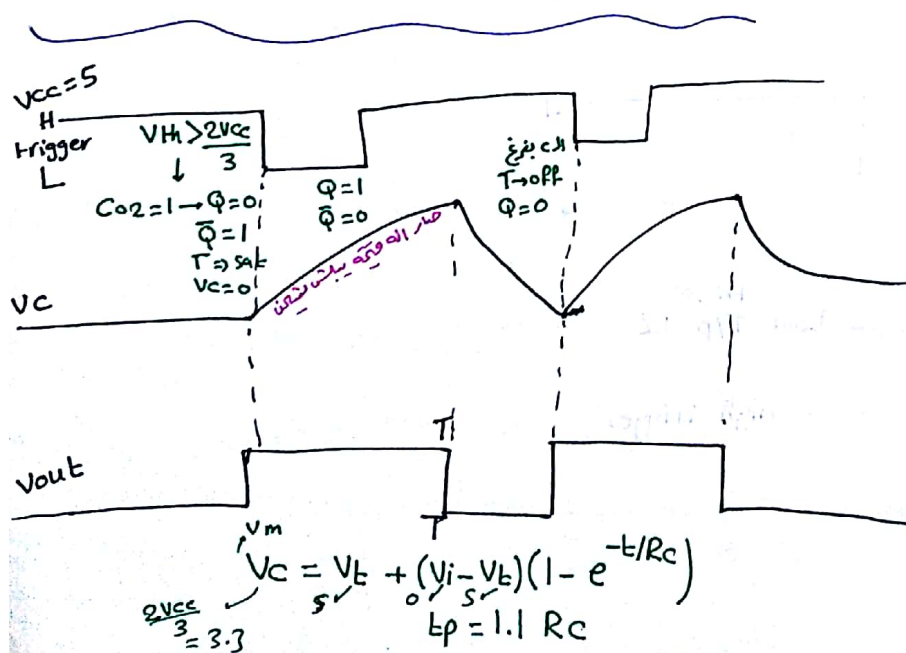 Vcc=5
H
trigger
L
VTh > 2Vcc/3
↓
Co2=1 → Q=0
Q̄=1
T ⇒ sat
Vc=0
Q=1
Q̄=0
بفرغ
T→off
Q=0
صار اله قيمة يبلش
Vc
T
Vout
T
Vm
Vc = Vt + (Vi - Vt)(1 - e^-t/Rc)
2Vcc/3 = 3.3
5 0 5
tp = 1.1 Rc